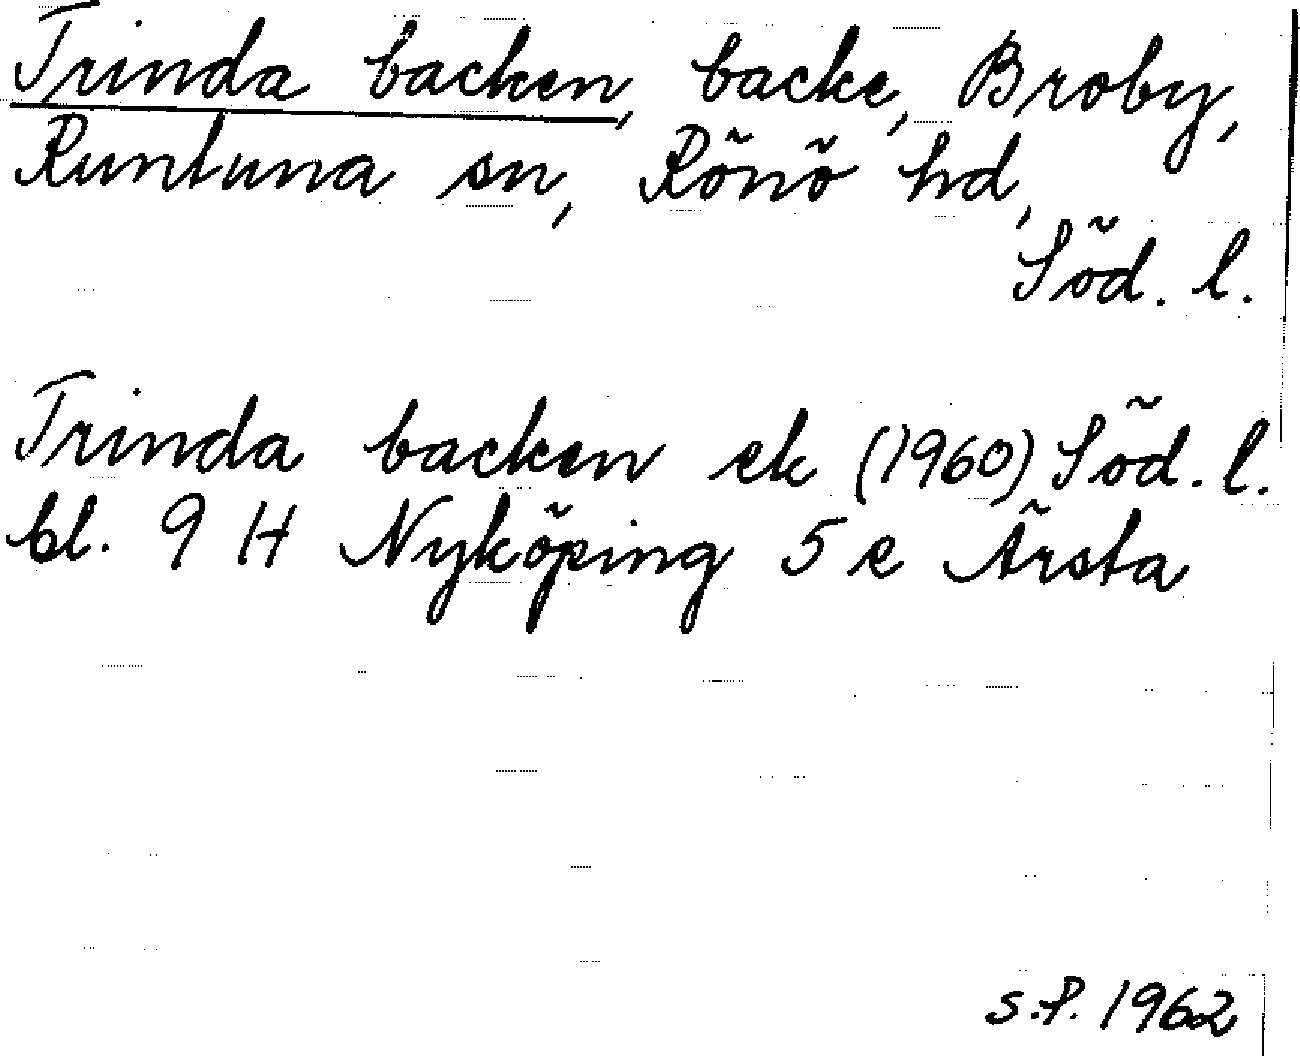 Trinda backen, backe, Broby,
Runtuna sn, Rönö hd,
Söd. l.
Trinda backen ek (1960) Söd. l.
bl. 9 H Nyköping 5 e Ärsta
S.P. 1962